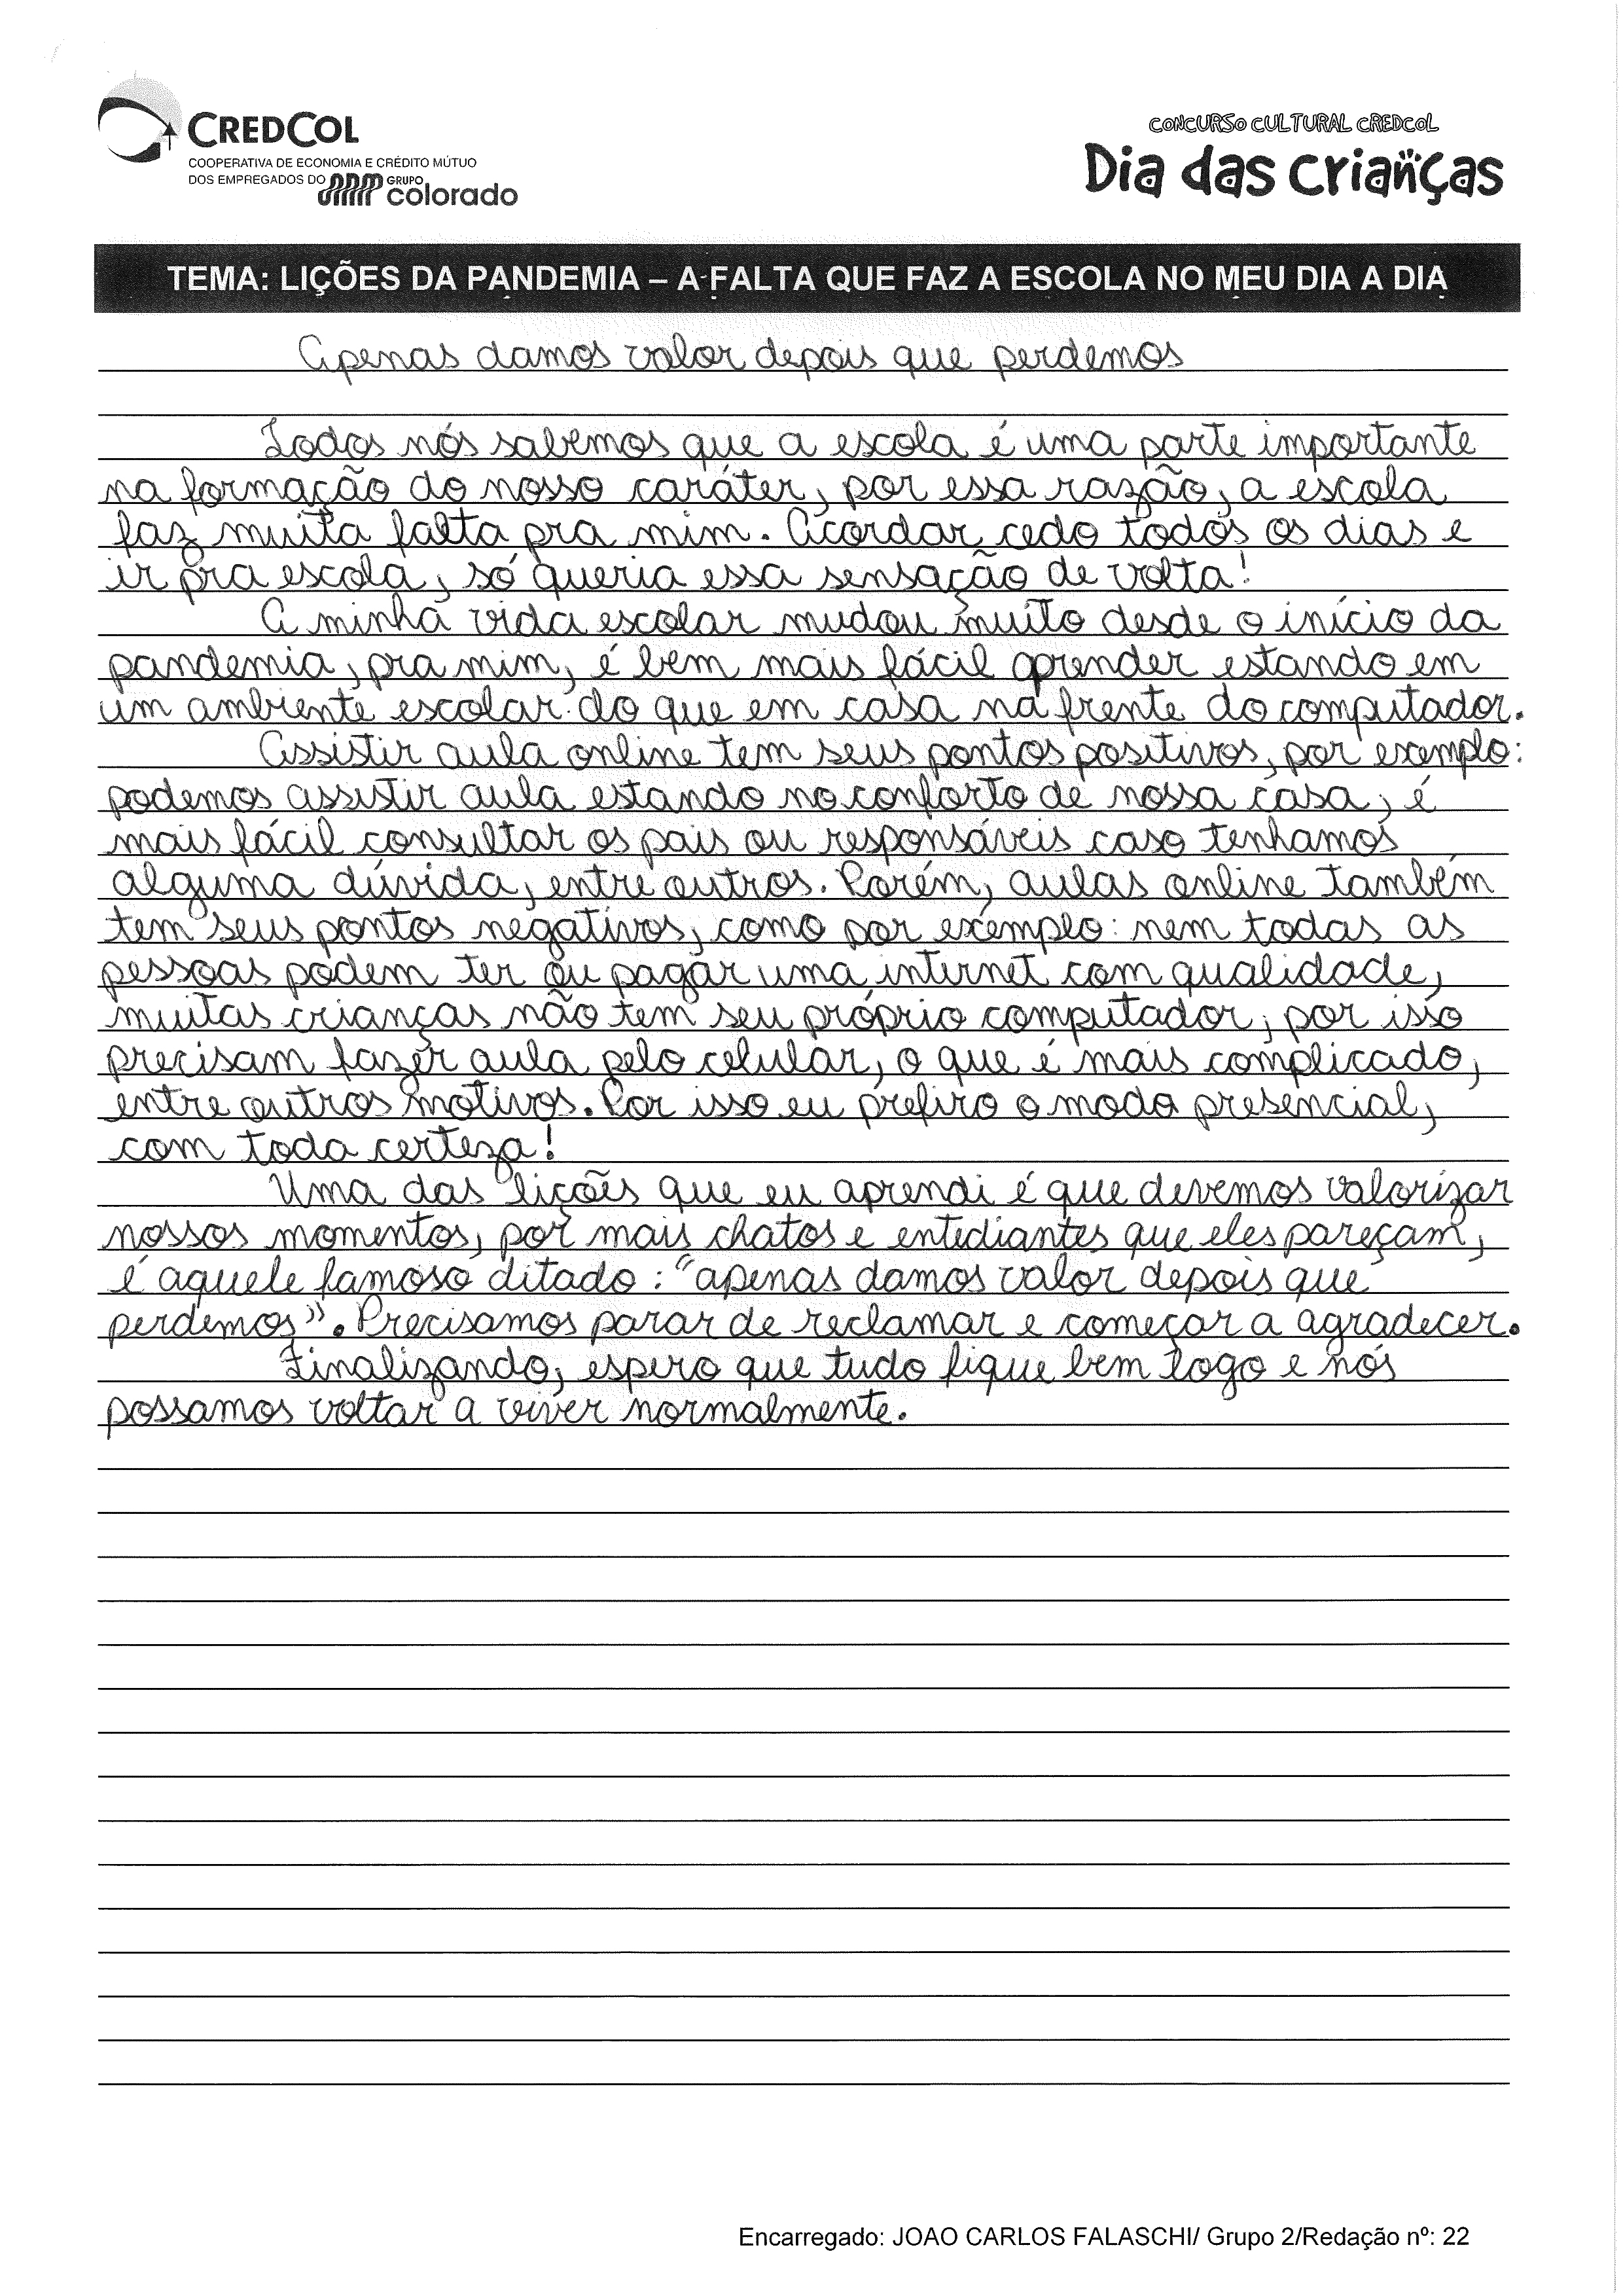 CREDCOL
COOPERATIVA DE ECONOMIA E CRÉDITO MÚTUO
DOS EMPREGADOS DO GRUPO
colorado
CONCURSO CULTURAL CREDCOL
Dia das crianças
TEMA: LIÇÕES DA PANDEMIA – A FALTA QUE FAZ A ESCOLA NO MEU DIA A DIA
Apenas damos valor depois que perdemos
Todos nós sabemos que a escola é uma parte importante
na formação do nosso caráter, por essa razão, a escola
faz muita falta pra mim. Acordar cedo todos os dias e
ir pra escola, só queria essa sensação de volta!
A minha vida escolar mudou muito desde o início da
pandemia, pra mim, é bem mais fácil aprender estando em
um ambiente escolar do que em casa na frente do computador.
Assistir aula online tem seus pontos positivos, por exemplo:
podemos assistir aula estando no conforto de nossa casa, é
mais fácil consultar os pais ou responsáveis caso tenhamos
alguma dúvida, entre outros. Porém, aulas online também
tem seus pontos negativos, como por exemplo: nem todas as
pessoas podem ter ou pagar uma internet com qualidade,
muitas crianças não tem seu próprio computador, por isso
precisam fazer aula pelo celular, o que é mais complicado,
entre outros motivos. Por isso eu prefiro o modo presencial,
com toda certeza!
Uma das lições que eu aprendi é que devemos valorizar
nossos momentos, por mais chatos e entediantes que eles pareçam,
é aquele famoso ditado: "apenas damos valor depois que
perdemos". Precisamos parar de reclamar e começar a agradecer.
Finalizando, espero que tudo fique bem logo e nós
possamos voltar a viver normalmente.
Encarregado: JOAO CARLOS FALASCHI/ Grupo 2/Redação nº: 22